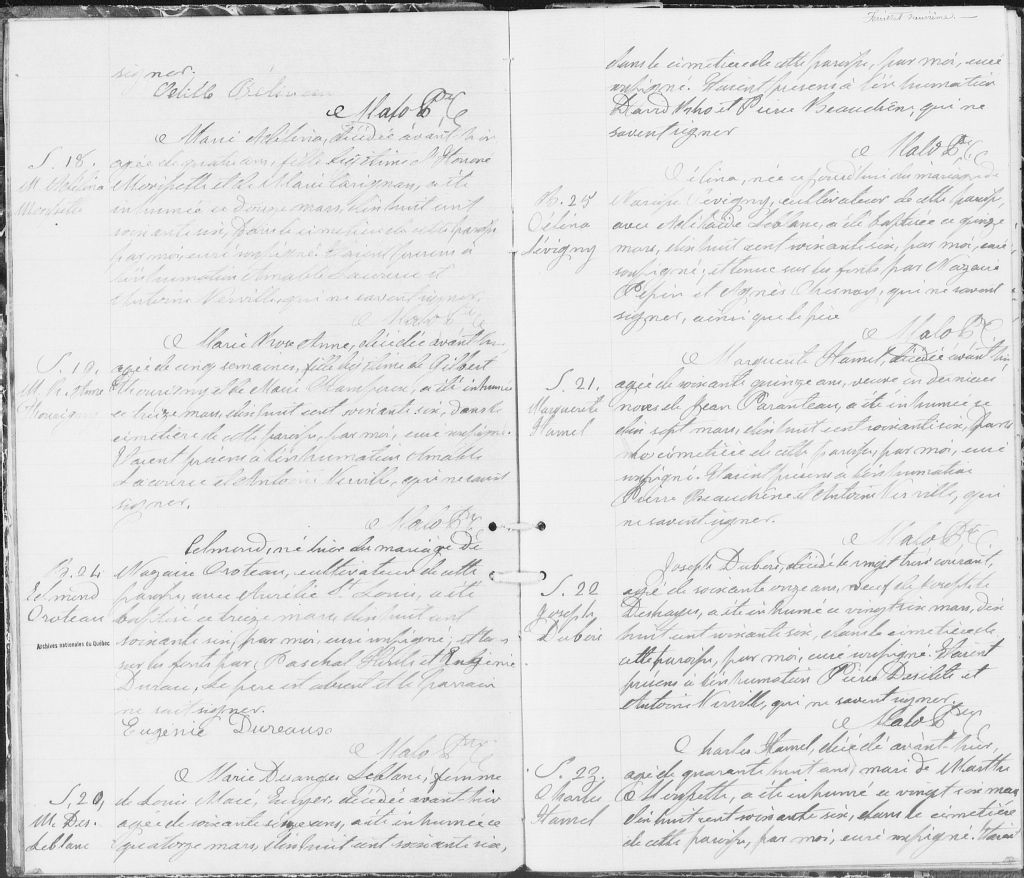 signer.
Odille
Malo Ptre
S. 18.
M. Melina
Marie Melina, décédée avant hier
agée de quatre ans, fille légitime d'Honoré
et de Marie Carignan, a été
inhumée ce douze mars, dix huit cent
soixante six, dans le cimetière de cette paroisse
par moi, curé soussigné. Etaient présens à
l'inhumation Aimable Lacourse et
Antoine Verville, qui ne savent signer.
Malo Ptre
S. 19.
M. R. Anne
Marie Rose Anne, décédée avant hier
agée de cinq semaines, fille légitime de
et de Marie a été inhumée
ce treize mars, dix huit cent soixante six, dans le
cimetière de cette paroisse, par moi, curé soussigné.
Etaient présens à l'inhumation Aimable
Lacourse et Antoine Verville, qui ne savent
signer.
Malo Ptre
B. 24
Edmond
Croteau
Edmond, né hier du mariage de
Nazaire Croteau, cultivateur de cette
paroisse, avec Aurélie St. Louis, a été
baptisé ce treize mars, dix huit cent
soixante six, par moi, curé soussigné, et tenu
sur les fonts par Paschal et Eugénie
Le père est absent et le parrain
ne sait signer.
Eugénie Dureauss
Malo Ptre
Archives nationales du Québec
S. 20,
M. Des.
Leblanc
Marie Desanges Leblanc, femme
de Louis Macé, décédée avant hier
agée de soixante ans, a été inhumée ce
quatorze mars, dix huit cent soixante six,
Feuillet neuvième.
dans le cimetière de cette paroisse, par moi, curé
soussigné. Etaient présens à l'inhumation
David et Pierre Beauchêne, qui ne
savent signer
Malo Ptre
B. 25
Célina
Sévigny
Célina, née aujourd'hui du mariage de
Narcisse Sévigny, cultivateur de cette paroisse,
avec Leblanc, a été baptisée ce quinze
mars, dix huit cent soixante six, par moi, curé
soussigné, et tenue sur les fonts par Nazaire
Pepin et Agnès Chesnay, qui ne savent
signer, ainsi que le père
Malo Ptre
S. 21.
Marguerite
Hamel
Marguerite Hamel, décédée avant hier
agée de soixante quinze ans, veuve en dernières
noces de Jean Paranteau, a été inhumée ce
dix sept mars, dix huit cent soixante six, dans
le cimetière de cette paroisse, par moi, curé
soussigné. Etaient présens à l'inhumation
Pierre Beauchêne et Antoine Verville, qui
ne savent signer.
Malo Ptre
S. 22
Joseph
Dubois
Joseph Dubois, décédé le vingt trois courant,
agé de soixante onze ans, veuf de Josephte
Deshayes, a été inhumé ce vingt six mars, dix
huit cent soixante six, dans le cimetière de
cette paroisse, par moi, curé soussigné. Etaient
présens à l'inhumation Pierre Desilets et
Antoine Verville, qui ne savent signer.
Malo Ptre
S. 23.
Charles
Hamel
Charles Hamel, décédé avant-hier,
agé de quarante huit ans, mari de Marthe
a été inhumé ce vingt six mars
dix huit cent soixante six, dans le cimetière
de cette paroisse, par moi, curé soussigné. Etaient